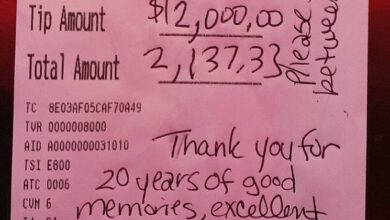 Tip Amount $12,000.00
Total Amount 2,137.33
Please
between
TC 8E03AF05CAF70A49
TVR 0000008000
AID A0000000031010
TSI E800
ATC 0006
CVM 6
Thank you for
20 years of good
memories, excellent